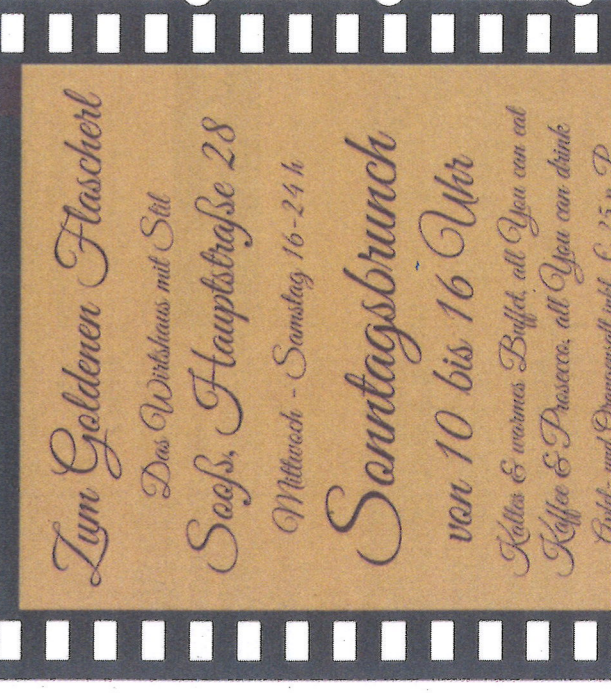 Zum Goldenen Flascherl
Das Wirtshaus mit Stil
Sooß, Hauptstraße 28
Mittwoch - Samstag 16-24 h
Sonntagsbrunch
von 10 bis 16 Uhr
Kaltes & warmes Buffet, all You can eat
Kaffee & Prosecco, all You can drink